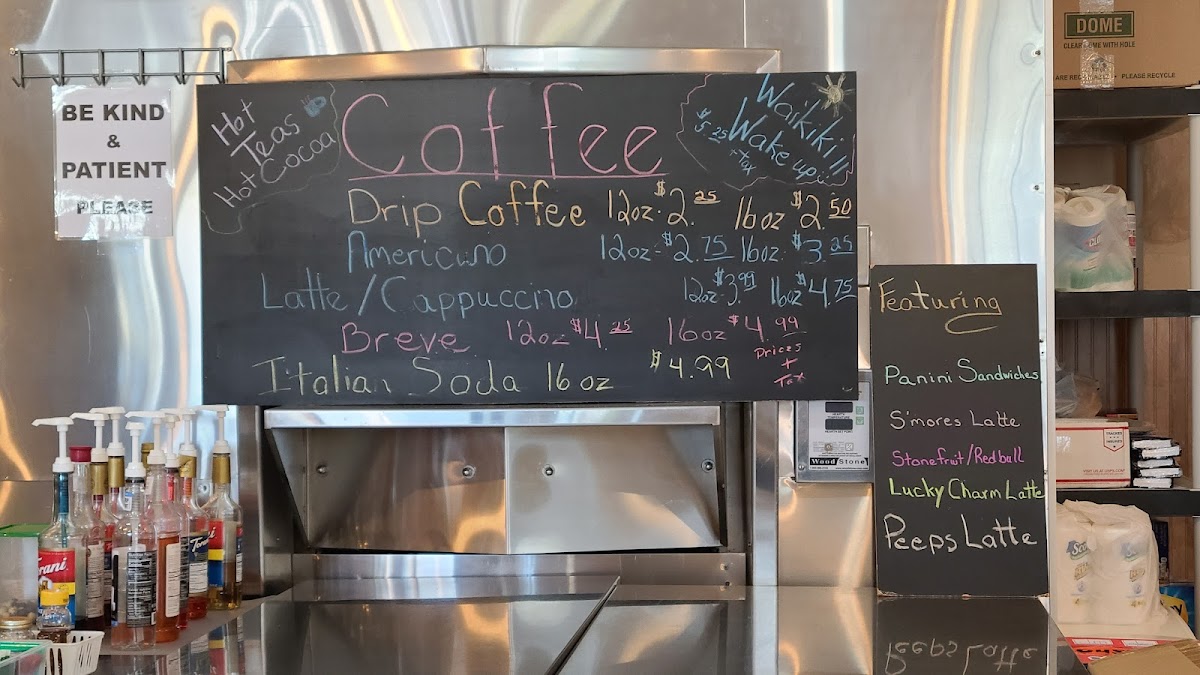 BE KIND
&
PATIENT
PLEASE
Hot
Teas
Hot Cocoa
Coffee
Waikiki!!!
Wake up..
$5.25
+ tax
Drip Coffee 12oz. $2.25 16oz $2.50
Americano 12oz. $2.75 16oz. $3.25
Latte/Cappuccino 12oz. $3.99 16oz $4.75
Breve 12oz $4.25 16oz $4.99
Italian Soda 16oz $4.99
Prices
+
Tax
Featuring
Panini Sandwiches
S'mores Latte
Stonefruit/Redbull
Lucky Charm Latte
Peeps Latte
Wood Stone
Torani
DOME
CLEAR DOME WITH HOLE
PLEASE RECYCLE